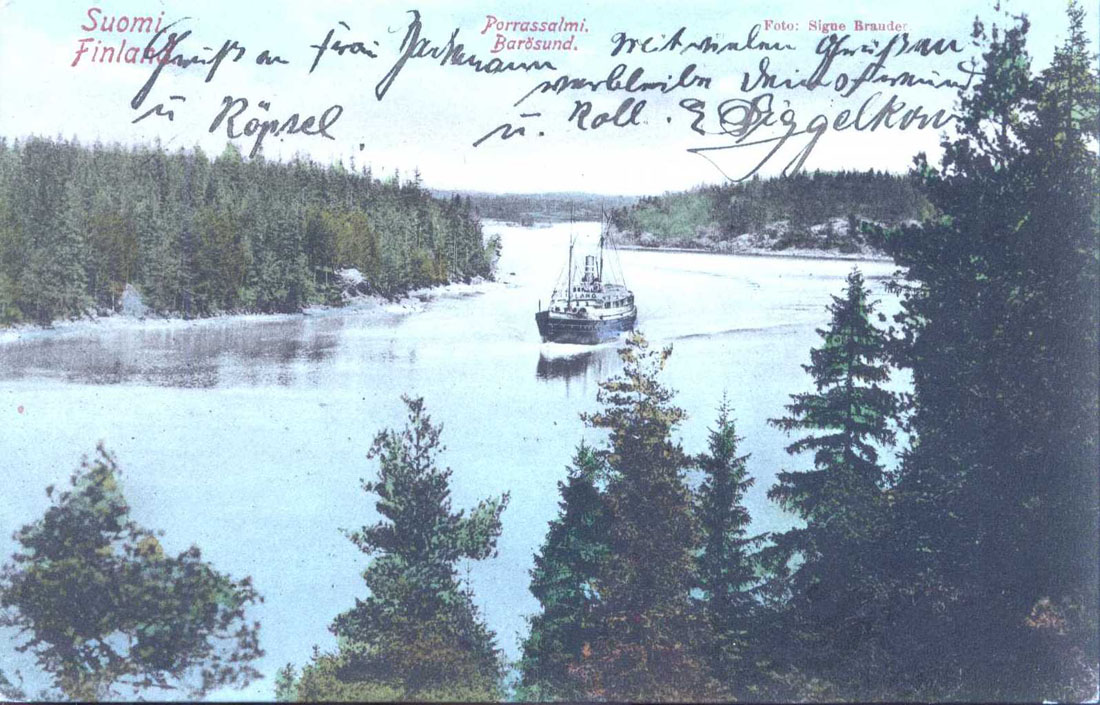 Suomi.
Finland
Porrassalmi.
Barösund.
Foto: Signe Brander
Gruß an Frau
u Röpsel
mit vielen Grüßen
verbleibe Dein
u. Koll. E Biggelkow
LAND